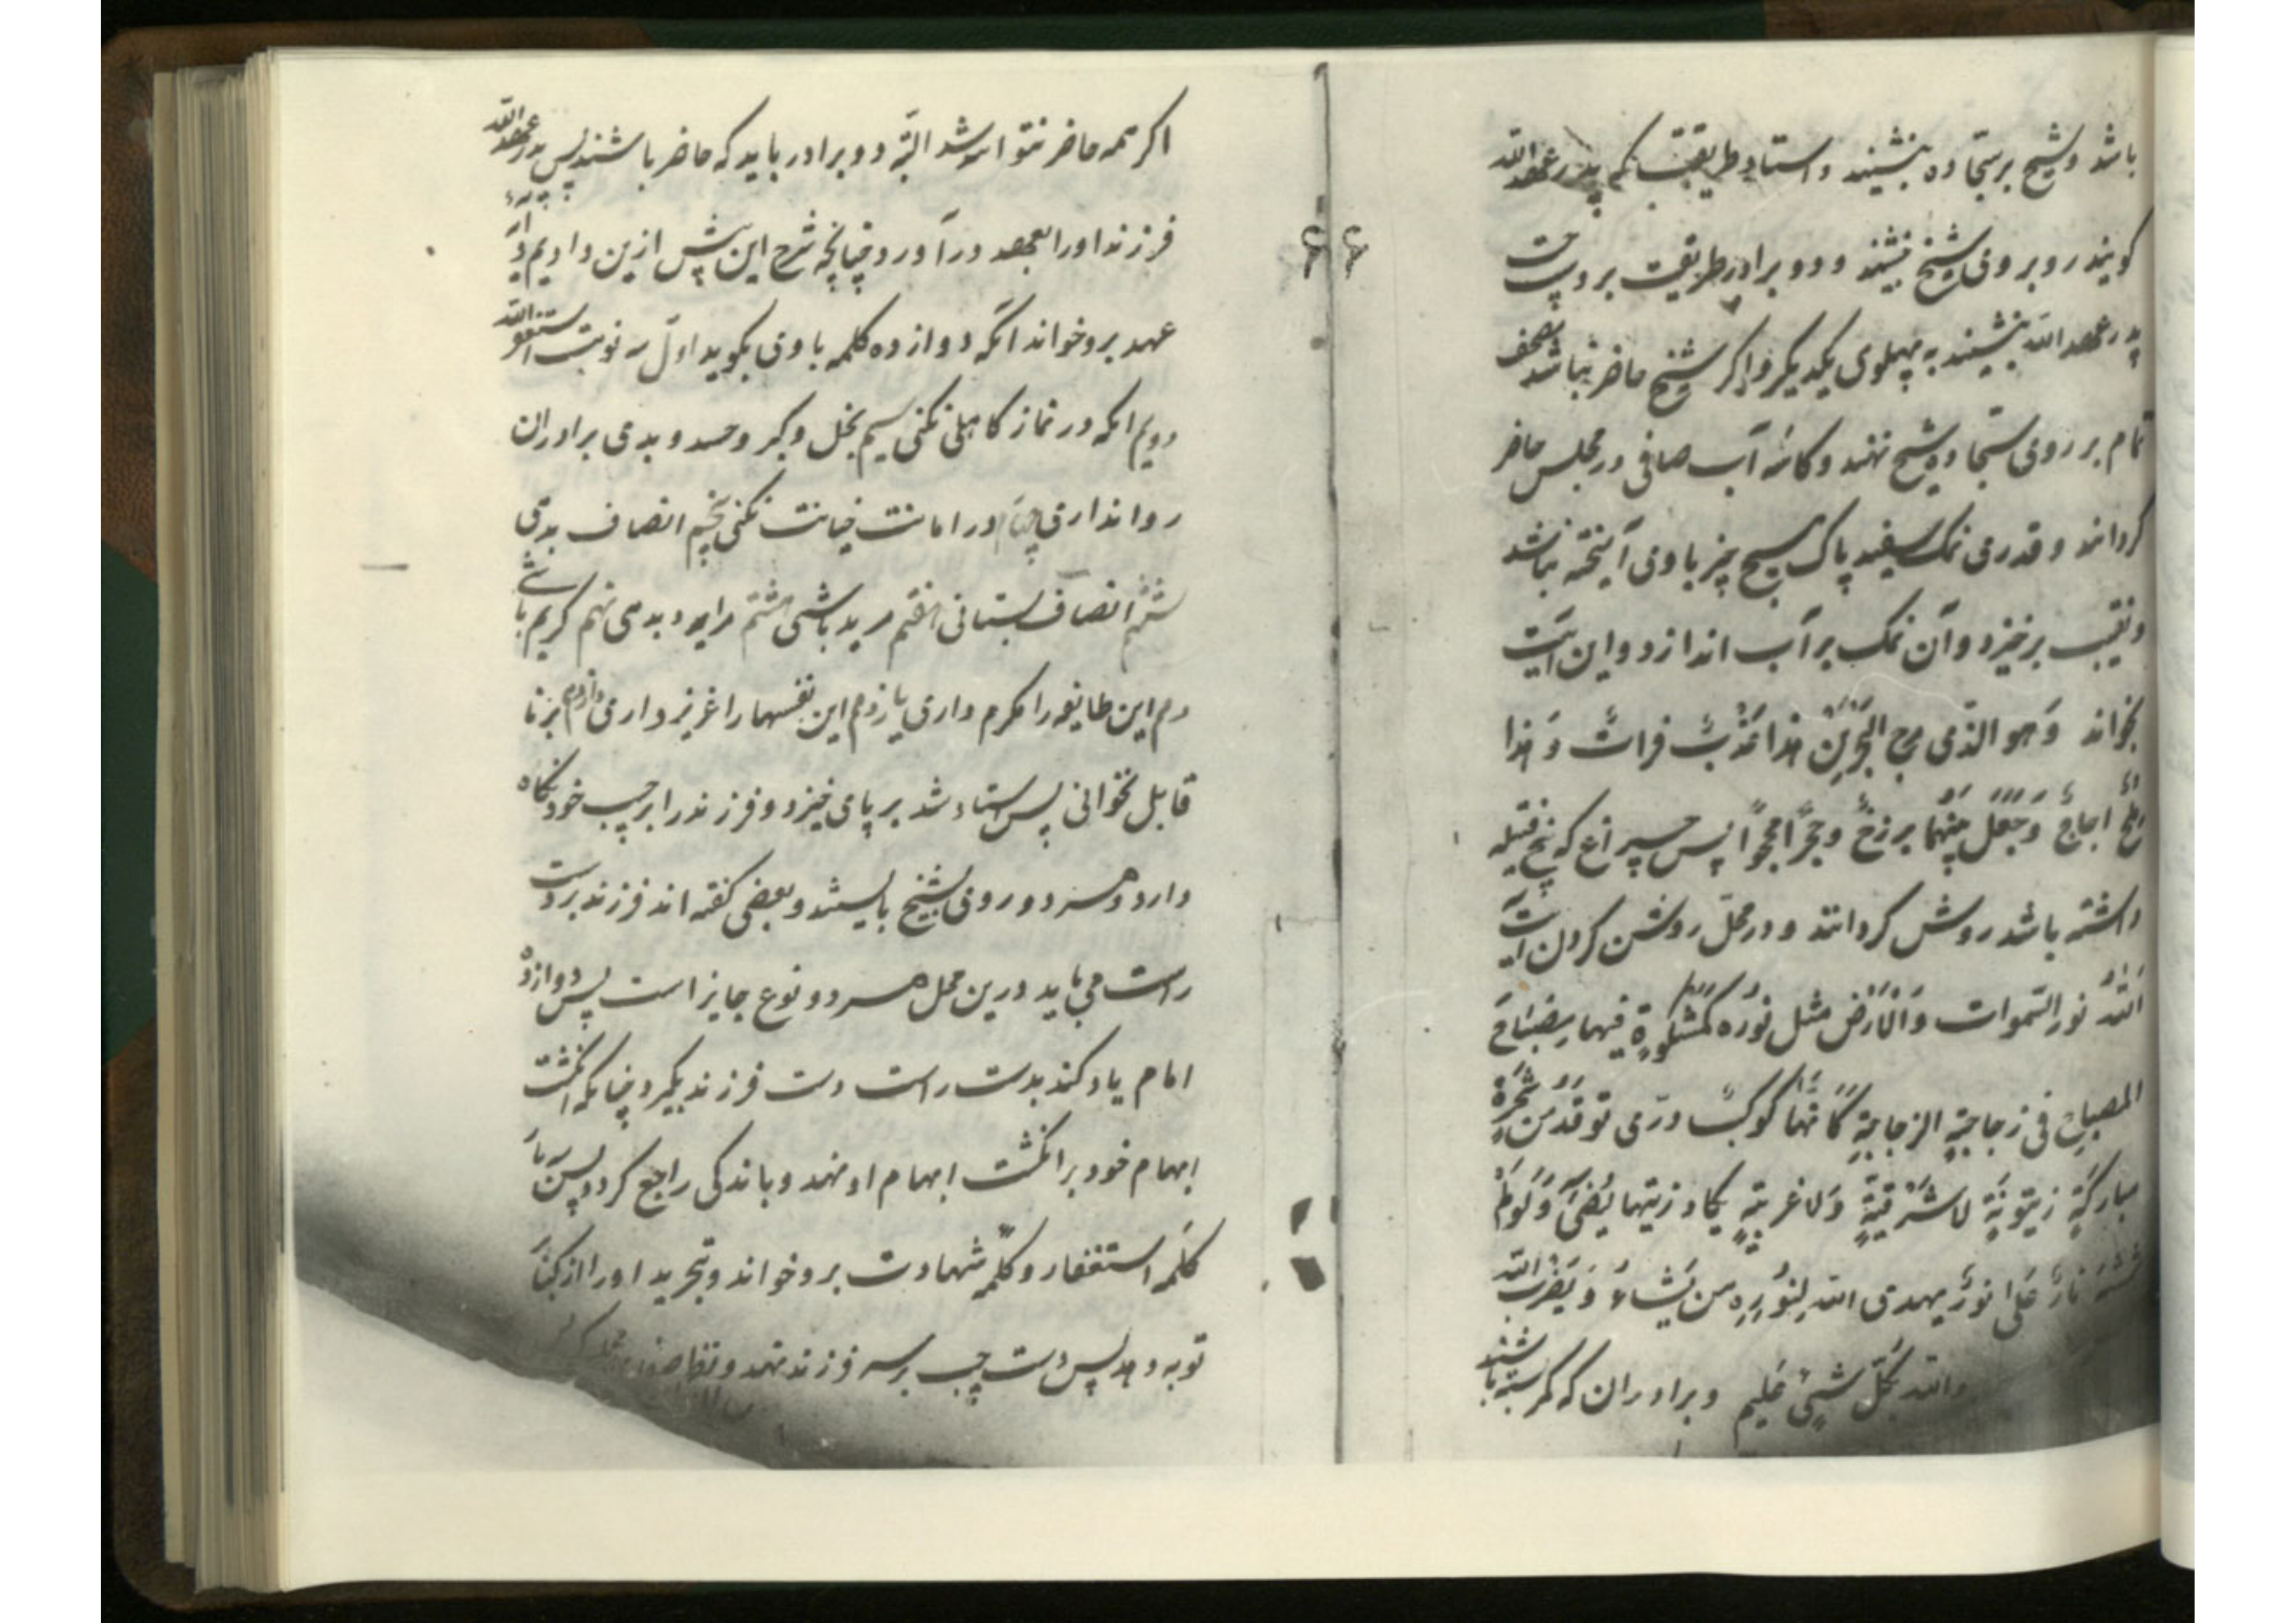 باشد و شیخ بر سجاده بنشیند و استاد طریقت که پدر عهد الله
کویند روبروی شیخ نشیند و دو برادر طریقت بر دست
پدر عهد الله بنشینند به پهلوی یکدیکر و اکر شیخ حاضر نباشد مصحف
تمام بر روی سجاده شیخ نهند و کاسه آب صافی در مجلس حاضر
کردانند و قدری نمک سفید پاک هیچ چیز با وی آمیخته نباشد
و نقیب برخیزد و آن نمک بر آب اندازد و این آیت
بخواند وَهو الذی مرج البَحْرَیْن هذا عَذْبٌ فراتٌ وَ هذا
ملحٌ اجاجٌ وَجَعَلَ بَیْنَهُمَا برزخٌ وحِجًرا محجوًا پس چراغ که پنج فتیله
داشته باشد روشن کردانند و در محل روشن کردن آیت
اَللهُ نور السّموات وَالْاَرْضِ مثل نوُره کَمشْکوةٍ فیها مِصْبَاحَ
المصباح فی زجاجةٍ الزجاجةِ کَاَنَّهَا کوکبٌ درّی توقَدُ مَنْ شَجَرَةٍ
مبارکَةٍ زیتونَةٍ لا شَرْقیَّةٍ وَلا غربیّةٍ یکاد زیتها یُضیءُ وَلَوْلَمْ
تمْسَسْهُ نارٌ عَلی نورٌ یهدی الله لِنوُرِهِ من یَشاءُ وَ یَضْرِبُ الله
والله بکُلّ شیءٍ عَلیم و برادران که کمر بسته باشند
۶۶
اکر همه حاضر نتوانند شد البته دو برادر باید که حاضر باشند پس پدر عهد الله
فرزند او را بعهد درآورد چنانچه شرح این پیش ازین دادیم
عهد برو خواند انکه دوازده کلمه با وی بکوید اول سه نوبت استغفر الله
دویم انکه در نماز کاهلی نکنی سیم بخل و کبر و حسد و بدی برادران
روا نداری چهارم در امانت خیانت نکنی پنجم انصاف بدی
ششم انصاف بستانی هفتم مرید باشی هشتم مراد بدی نهم کریم باشی
دهم این طایفه را مکرم داری یازدهم این نفسها را عزیز داری دوازدهم بر نا
قابل نخوانی پس استاد شد بر پای خیزد و فرزند را بر چپ خود نکاه
دارد و هر دو روی بشیخ بایستند و بعضی کفته اند فرزند بر دست
راست می باید درین محل هر دو نوع جایز است پس دوازده
امام یاد کند بدست راست دست فرزند بکیرد چنانکه انکشت
ابهام خود بر انکشت ابهام او نهد و باندکی راجع کردد پس
کلمه استغفار و کلمه شهادت برو خواند و تجرید او را از کناه
توبه دهد پس دست چپ بر سر فرزند نهد و